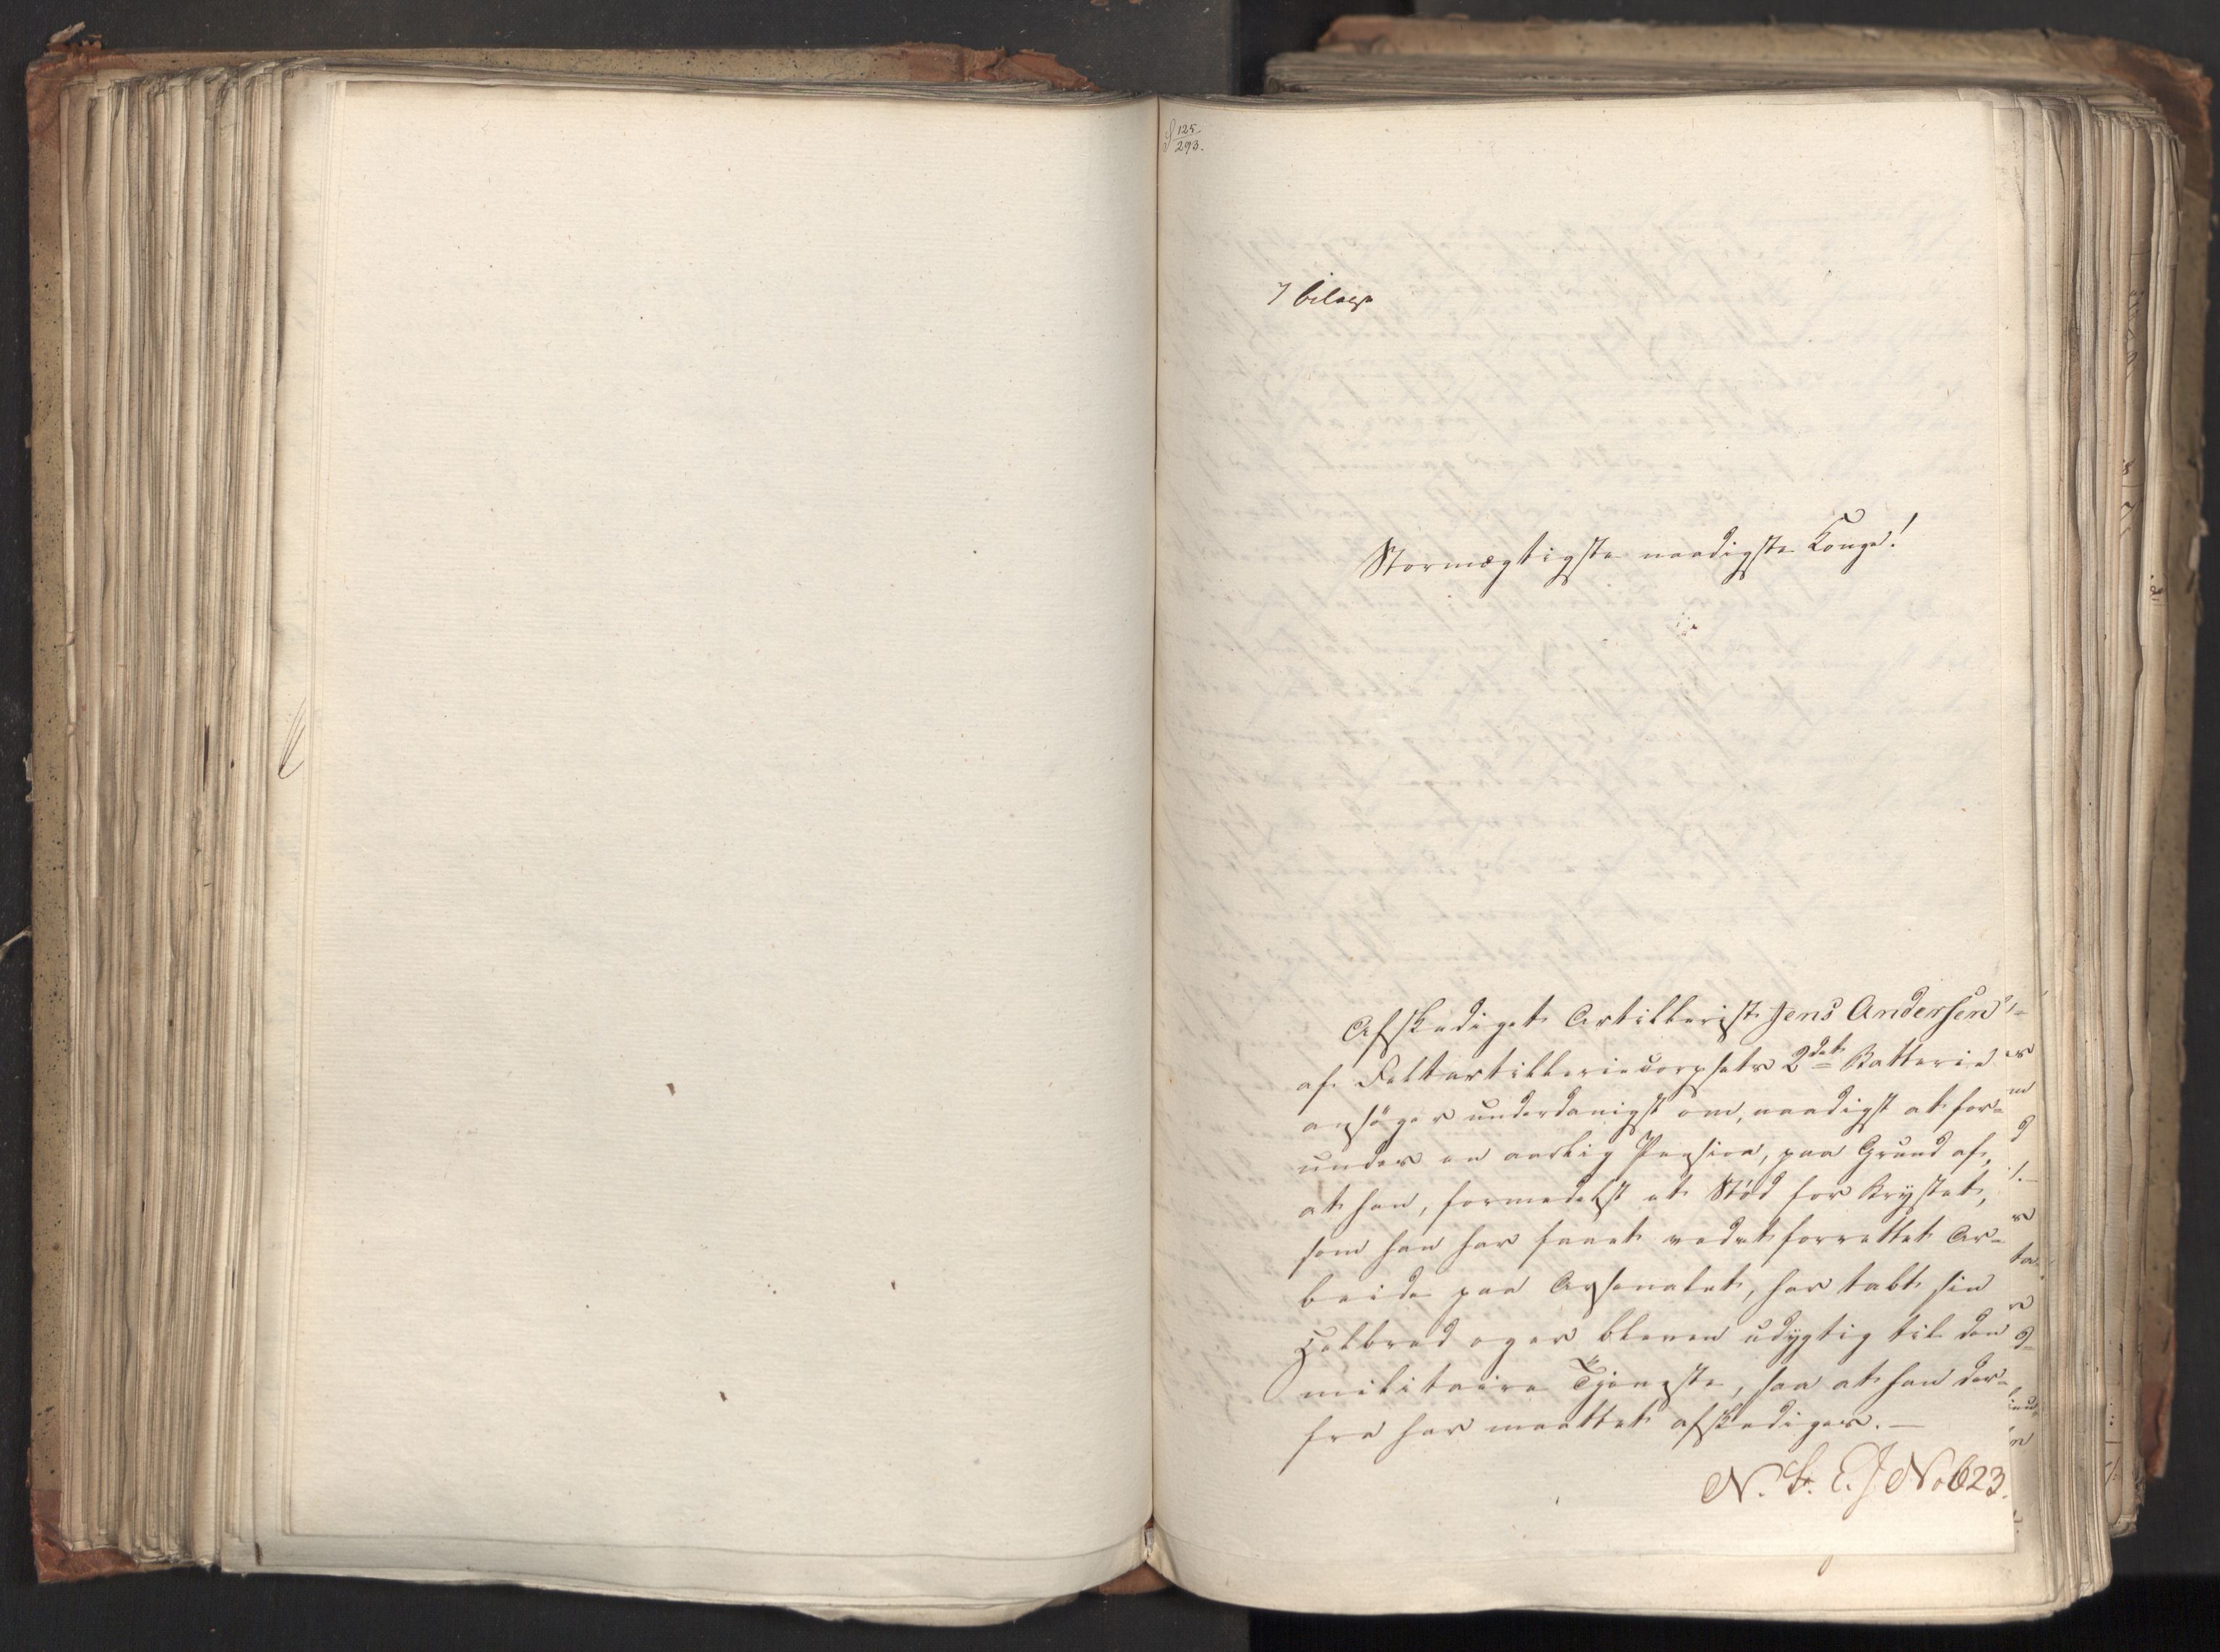 S 125
293.
7 bilage
Stormægtigste naadigste Konge!
Afskediget Artillerist Jens Andersen
af Feltartilleriecorpsets 2det Batterie
ansöger underdanigst om, naadigst at for=
undes en aarlig Pension, paa Grund af,
at han, formedelst et Stöd for Brystet,
som han har faaet ved et forrettet Ar=
beide paa Arsenalet, har tabt sin
Helbred og er bleven udygtig til den
militaire Tjeneste, saa at han der=
fra har maattet afskediges. —
N. b. E. J No 623.